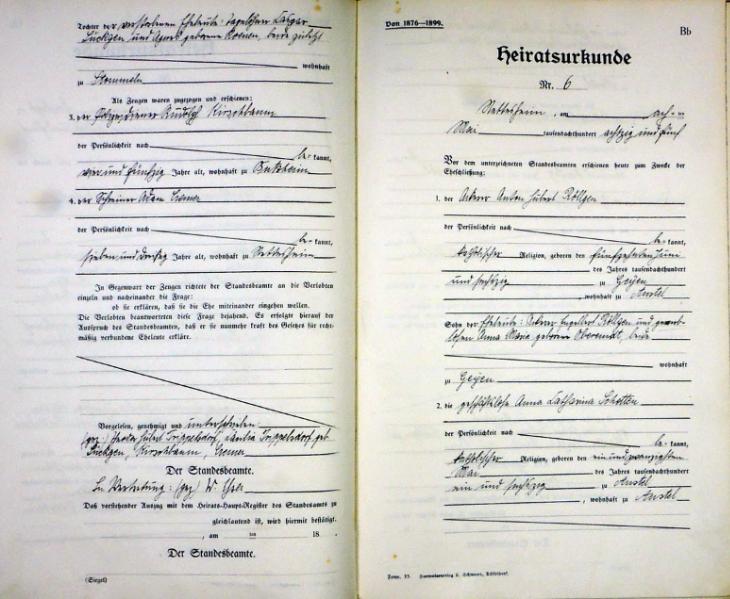 Tochter der verstorbenen Eheleute: Tagelöhner
Lückgen und Agnes geborene Koenen, beide zuletzt
wohnhaft
zu Stommeln
Als Zeugen waren zugezogen und erschienen:
3. der Polizeidiener Rudolf Kirschbaum
der Persönlichkeit nach
be- kannt,
vier und fünfzig Jahre alt, wohnhaft zu Butzheim
4. der Schreiner Adam Cremer
der Persönlichkeit nach
be- kannt,
sieben und dreißig Jahre alt, wohnhaft zu Nettesheim
In Gegenwart der Zeugen richtete der Standesbeamte an die Verlobten
einzeln und nacheinander die Frage:
ob sie erklären, daß sie die Ehe miteinander eingehen wollen.
Die Verlobten beantworteten diese Frage bejahend. Es erfolgte hierauf der
Ausspruch des Standesbeamten, daß er sie nunmehr kraft des Gesetzes für recht-
mäßig verbundene Eheleute erkläre.
Vorgelesen, genehmigt und unterschrieben
(gez:) Hubert Trippelsdorf, Trippelsdorf geb.
Lückgen, Kirschbaum, Cremer
Der Standesbeamte.
In Vertretung: (gez)
Daß vorstehender Auszug mit dem Heirats-Haupt-Register des Standesamts zu
gleichlautend ist, wird hiermit bestätigt.
, am ten 18
Der Standesbeamte.
(Siegel)
Von 1876—1899.
Bb
Heiratsurkunde
Nr. 6
Nettesheim, am ach-ten
Mai tausendachthundert achtzig und fünf
Vor dem unterzeichneten Standesbeamten erschienen heute zum Zwecke der
Eheschließung:
1. der Ackerer Anton Hubert Röllgen
der Persönlichkeit nach
be- kannt,
katholischer Religion, geboren den fünfzehnten Juni
des Jahres tausendachthundert
und sechszig zu Geyen
, wohnhaft zu Anstel
Sohn der Eheleute: Ackerer Engelbert Röllgen und gewerb-
losen Anna Maria geborene Oberendt, beide
wohnhaft
zu Geyen
2. die geschäftslose Anna Catharina Schotten
der Persönlichkeit nach
be- kannt,
katholischer Religion, geboren den ein und zwanzigsten
Mai des Jahres tausendachthundert
ein und sechszig zu Anstel
, wohnhaft zu Anstel